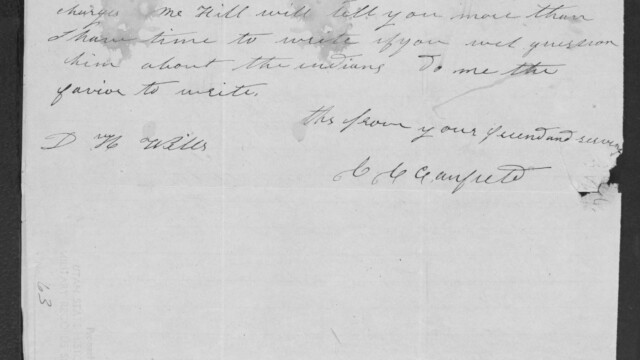 charges Mr Hill will tell you more than
I have time to write if you wil question
him about the indians Do me the
favior to write.
this from your friend and servant
D H Wells
C C Canfield
63